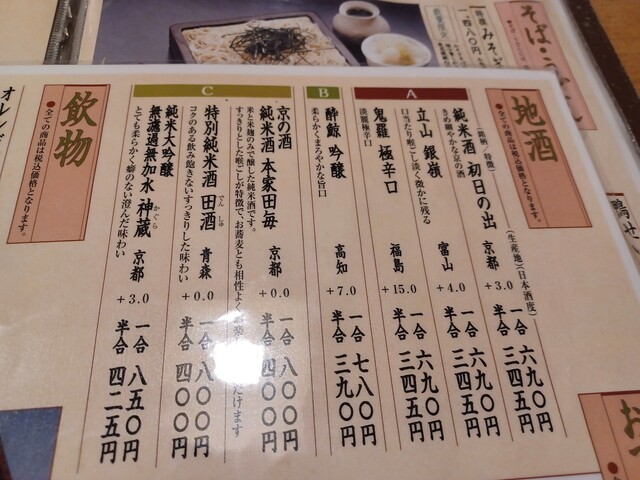 そば・う
地酒
●全ての商品は税込価格となります。
(銘柄/特徴)
(生産地)(日本酒度)
A
純米酒 初日の出 京都 +3.0 一合 六九〇円
きめ細やかな京の酒 半合 三四五円
立山 銀嶺 富山 +4.0 一合 六九〇円
口当たり喉ごし淡く微かに残る 半合 三四五円
鬼羅 極辛口 福島 +15.0 一合 六九〇円
淡麗極辛口 半合 三四五円
B
酔鯨 吟醸 高知 +7.0 一合 七八〇円
柔らかくまろやかな旨口 半合 三九〇円
C
京の酒
純米酒 本家田毎 京都 +0.0 一合 八〇〇円
米と米麹のみで醸した純米酒です。 半合 四〇〇円
すっきりとした喉ごしが特徴で、お蕎麦とも相性よく
だけます
特別純米酒 田酒 でんしゅ 青森 +0.0 一合 八〇〇円
コクのある飲み飽きないすっきりした味わい 半合 四〇〇円
純米大吟醸
無濾過無加水 神蔵 かぐら 京都 +3.0 一合 八五〇円
とても柔らかく癖のない澄んだ味わい 半合 四二五円
飲物
●全ての商品は税込価格となります。
オレン